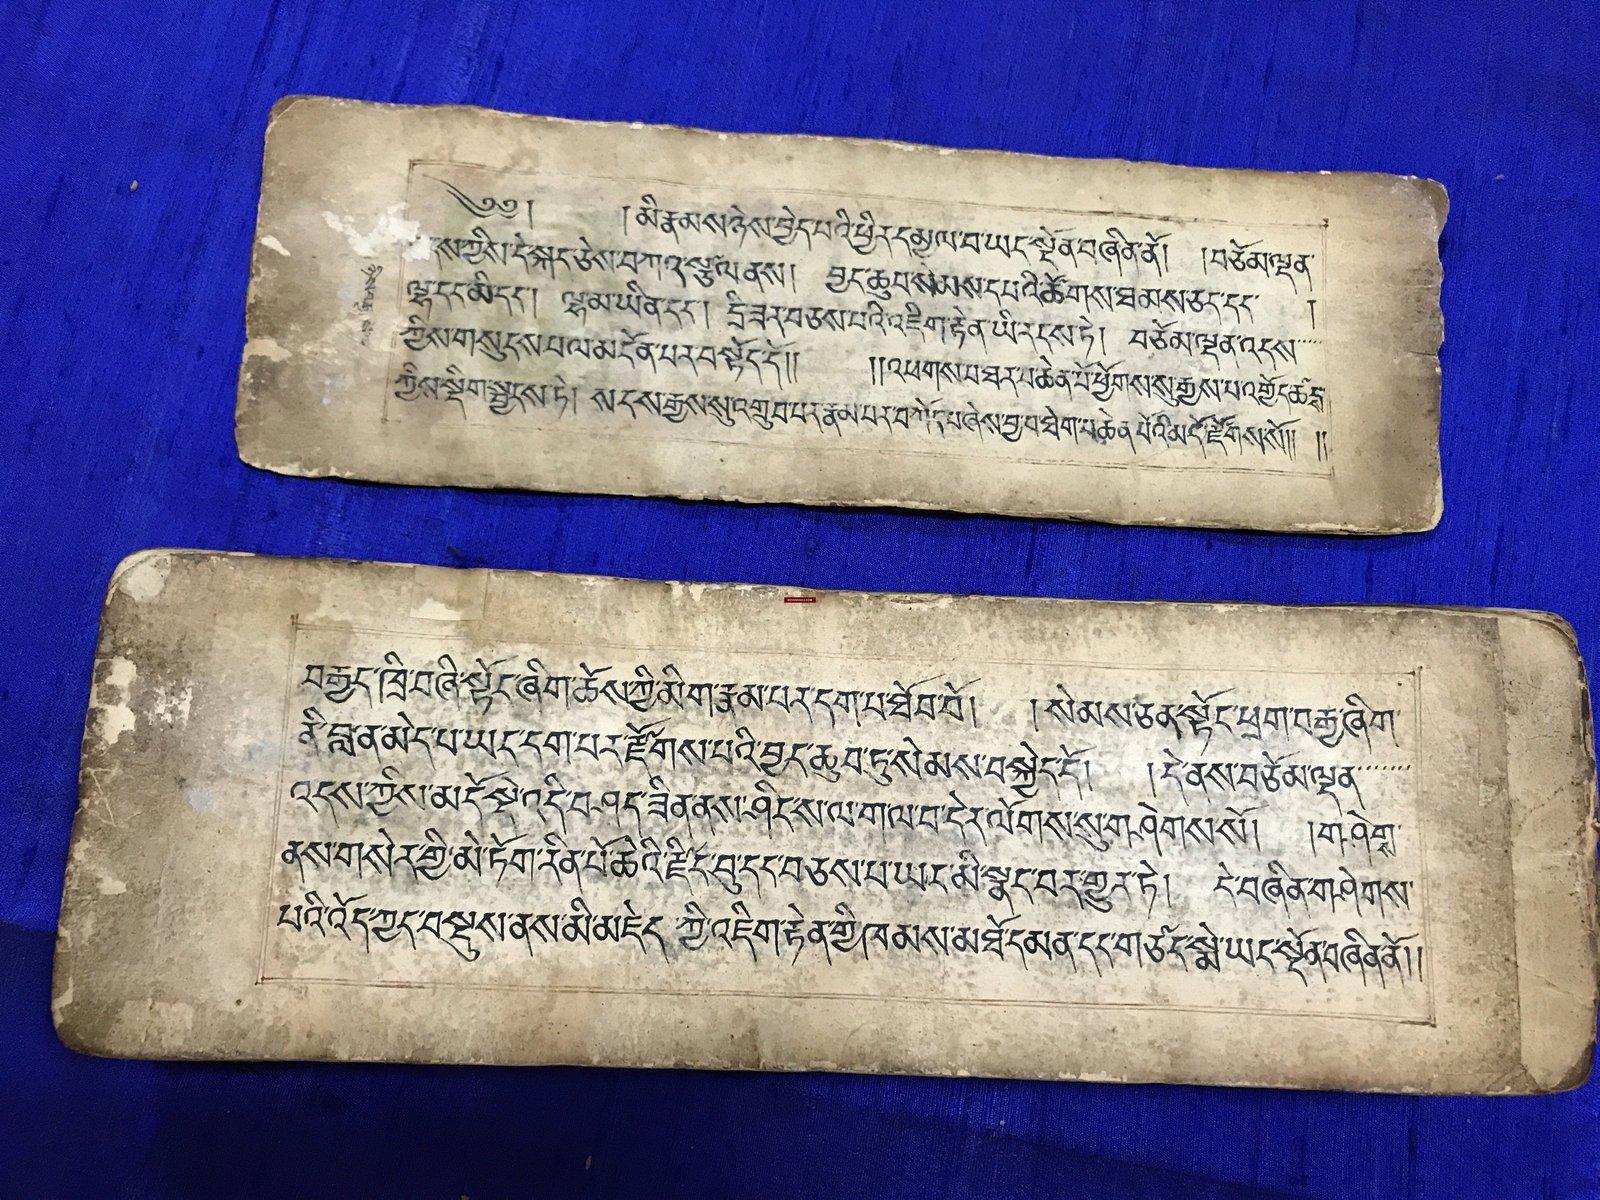 ༄༅། །མི་རྣམས་ཉེས་བྱེད་པའི་ཕྱིར་དམྱལ་བ་ཡང་སྟོན་བཞིན་ནོ། །བཅོམ་ལྡན་
འདས་ཀྱིས་དེ་སྐད་ཅེས་བཀའ་སྩལ་ནས། བྱང་ཆུབ་སེམས་དཔའི་ཚོགས་ཐམས་ཅད་དང་ །
ལྷ་དང་མི་དང་། ལྷ་མ་ཡིན་དང་། དྲི་ཟར་བཅས་པའི་འཇིག་རྟེན་ཡི་རངས་ཏེ། བཅོམ་ལྡན་འདས་
ཀྱིས་གསུངས་པ་ལ་མངོན་པར་བསྟོད་དོ།། །།འཕགས་པ་ཐར་པ་ཆེན་པོ་ཕྱོགས་སུ་རྒྱས་པ་འགྱོད་ཚངས་
ཀྱིས་སྡིག་སྦྱངས་ཏེ། སངས་རྒྱས་སུ་འགྲུབ་པར་རྣམ་པར་བཀོད་པ་ཞེས་བྱ་བ་ཐེག་པ་ཆེན་པོའི་མདོ་རྫོགས་སོ།། །།
བརྒྱད་ཁྲི་བཞི་སྟོང་ཞིག་ཆོས་ཀྱི་མིག་རྣམ་པར་དག་པ་ཐོབ་བོ། །སེམས་ཅན་སྟོང་ཕྲག་བརྒྱ་ཞིག་
ནི་བླ་ན་མེད་པ་ཡང་དག་པར་རྫོགས་པའི་བྱང་ཆུབ་ཏུ་སེམས་བསྐྱེད་དོ། །དེ་ནས་བཅོམ་ལྡན་
འདས་ཀྱིས་མདོ་སྡེ་འདི་བཤད་ཟིན་ནས་ཤིང་ས་ལ་ག་ལ་བ་དེར་ལོགས་སུ་གཤེགས་སོ། །གཤེགས་
ནས་གསེར་གྱི་མེ་ཏོག་རིན་པོ་ཆེའི་རྫིང་བུ་དང་བཅས་པ་ཡང་མི་སྣང་བར་གྱུར་ཏེ། དེ་བཞིན་གཤེགས་
པའི་འོད་ཀྱང་བསྡུས་ནས་མི་མཇེད་ཀྱི་འཇིག་རྟེན་གྱི་ཁམས་མཐོ་དམན་དང་གཙང་སྨེ་ཡང་སྔོན་བཞིན་ནོ།།